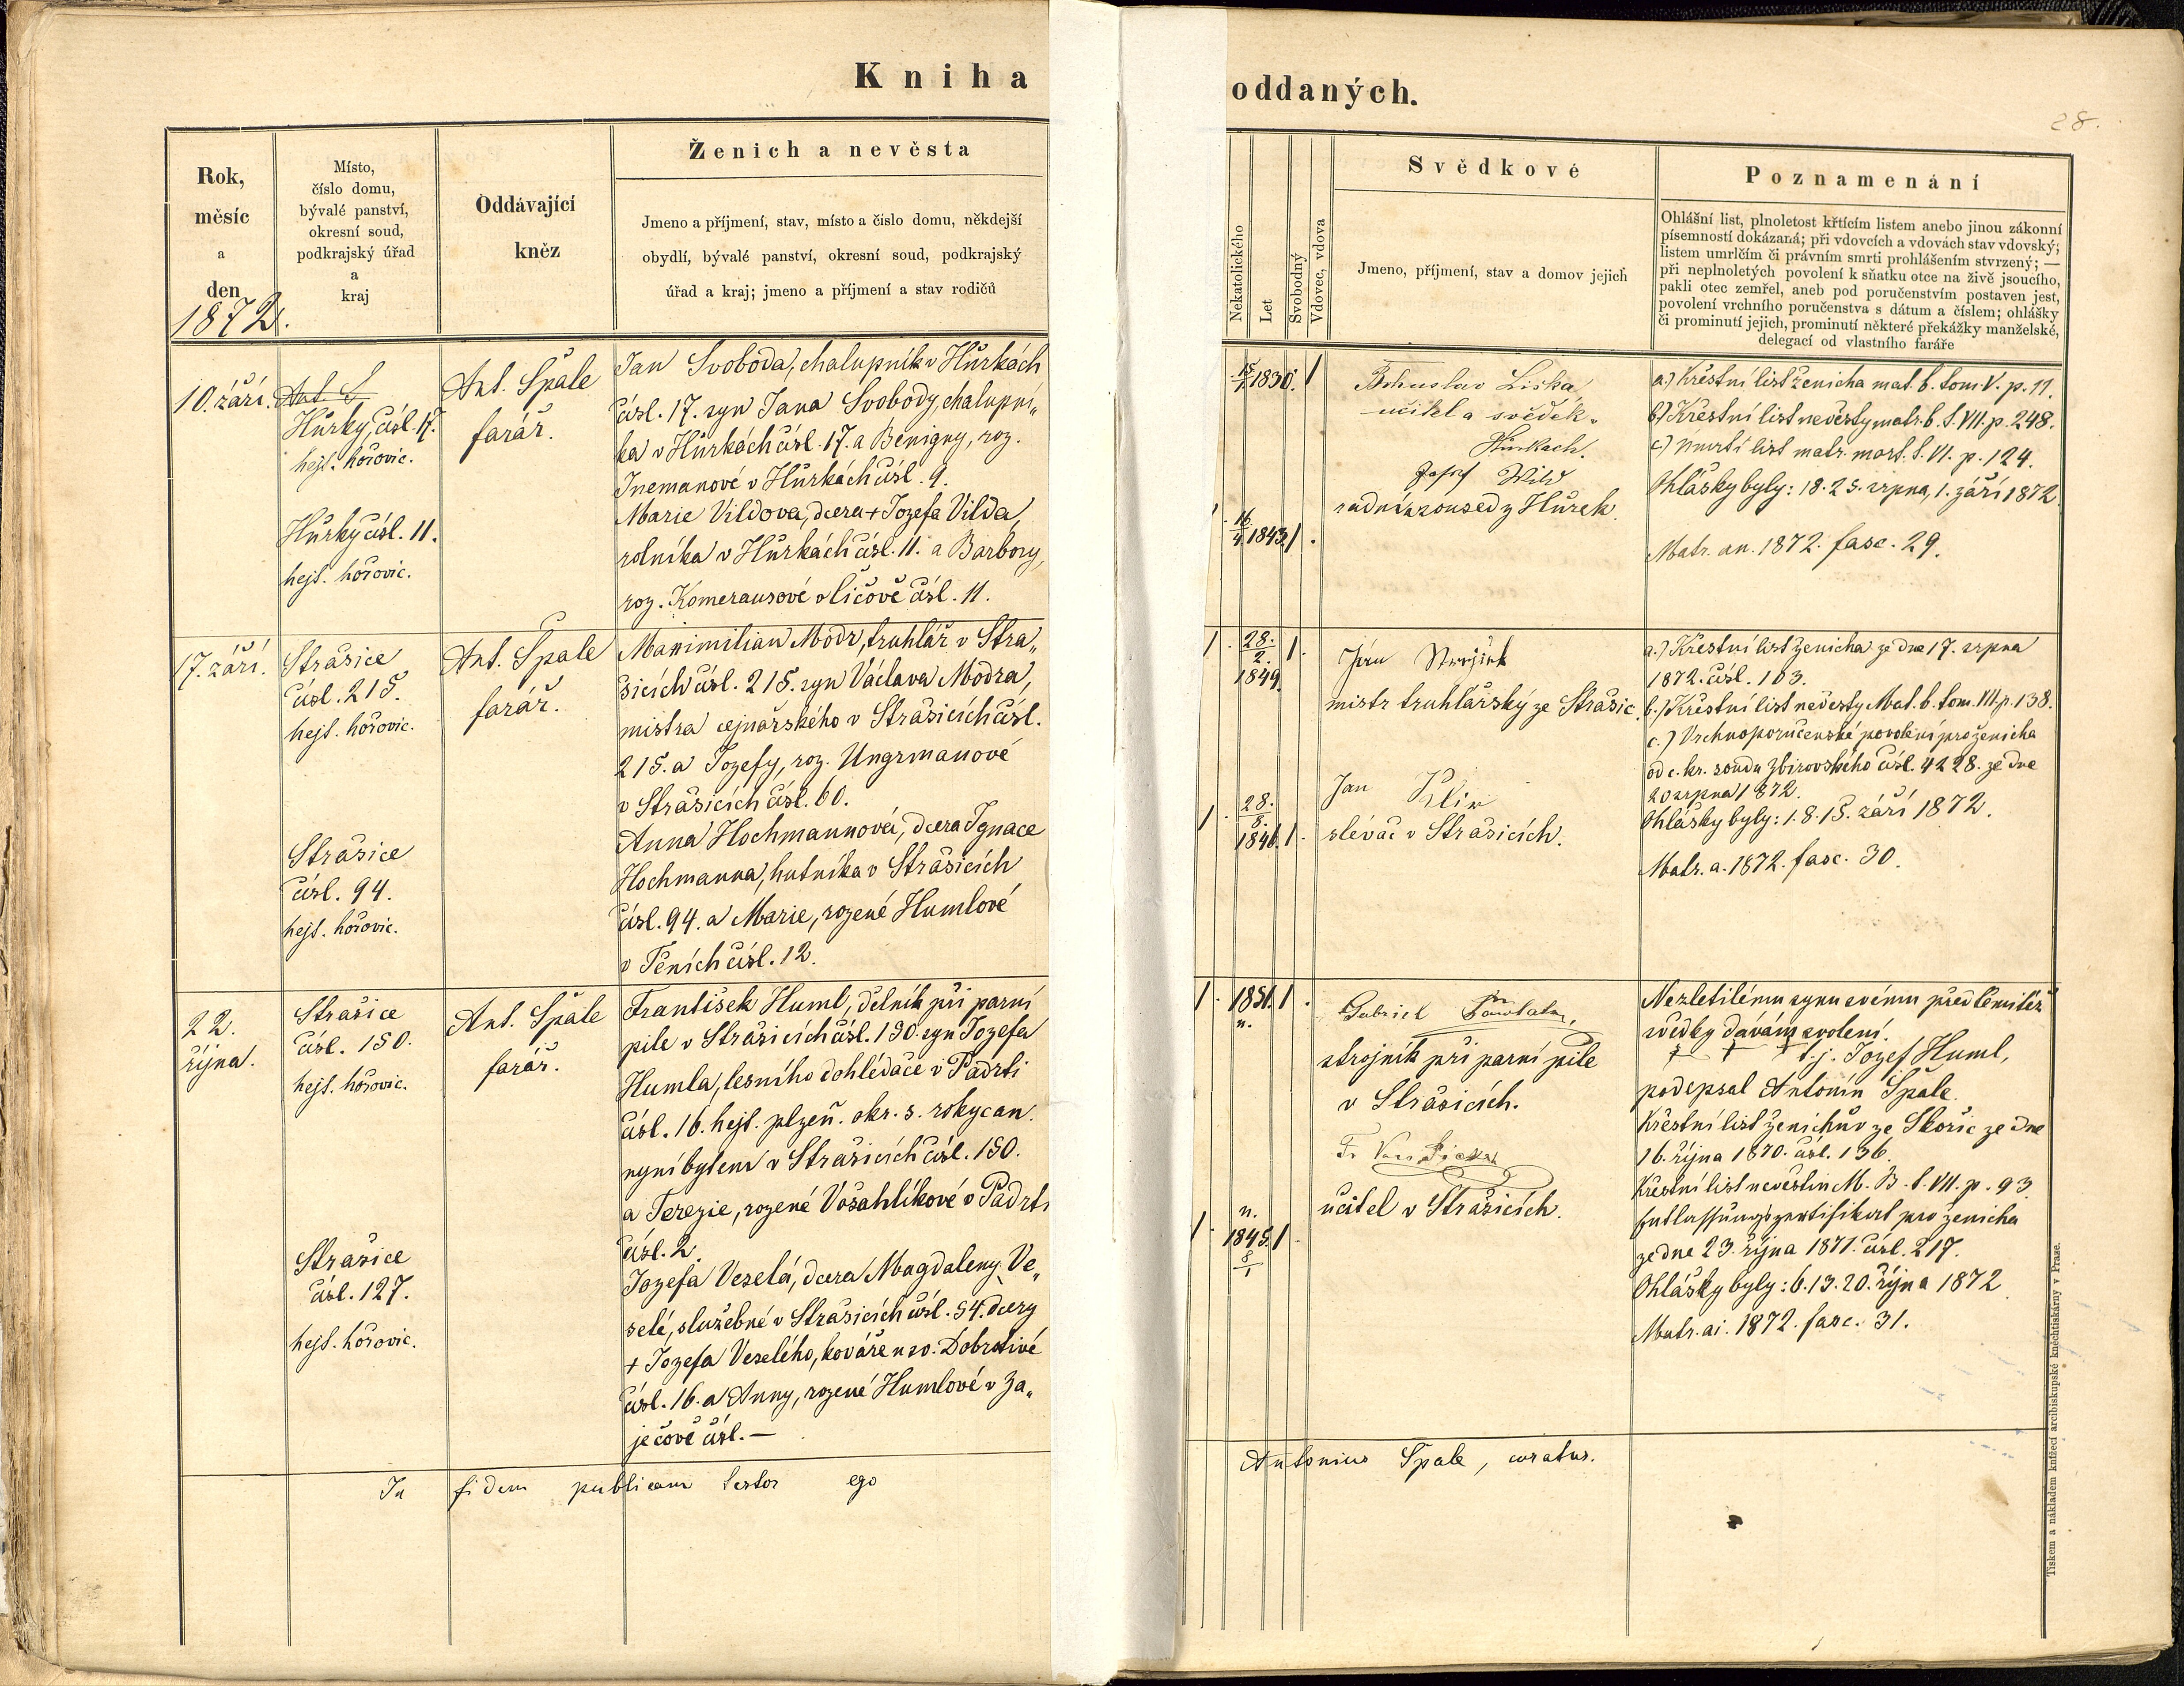 Kniha oddaných.
28.
Rok,
měsíc
a
den
1872.
Místo,
číslo domu,
bývalé panství,
okresní soud,
podkrajský úřad
a
kraj
Oddávající
kněz
Ženich a nevěsta
Jmeno a příjmení, stav, místo a číslo domu, někdejší
obydlí, bývalé panství, okresní soud, podkrajský
úřad a kraj; jmeno a příjmení a stav rodičů
Nekatolického
Let
Svobodný
Vdovec, vdova
Svědkové
Jmeno, příjmení, stav a domov jejich
Poznamenání
Ohlášní list, plnoletost křtícím listem anebo jinou zákonní
písemností dokázaná; při vdovcích a vdovách stav vdovský,
listem umrlčím či právním smrti prohlášením stvrzený; —
při neplnoletých povolení k sňatku otce na živě jsoucího,
pakli otec zemřel, aneb pod poručenstvím postaven jest,
povolení vrchního poručenstva s dátum a číslem; ohlášky
či prominutí jejich, prominutí některé překážky manželské,
delegací od vlastního faráře
10. září.
Ant. S
Hůrky, čísl. 17.
hejt. hořovic.
Hůrky čísl. 11.
hejt. hořovic.
Ant. Špale
farář.
Jan Svoboda, chalupník v Hůrkách
čísl. 17. syn Jana Svobody, chalupní„
ka v Hůrkách čísl. 17. a Benigny, roz.
v Hůrkách čísl. 9.
Marie Vildova, dcera + Jozefa Vilda,
rolníka v Hůrkách čísl. 11. a Barbory,
roz. Komerausové v Líčově čísl. 11.
15/1 1830. 1
16/4 1843. 1.
Bohuslav Liška,
učitel a svědek.
Hůrkach.
Josef Wild
radní a soused z Hůrek.
a.) Křestní list ženicha mat. b. tom V. p. 11.
b.) Křestní list nevěsty matr. b. t. VII. p. 248.
c.) Úmrtí list matr. mort. t. VI. p. 124.
Ohlášky byly: 18. 25. srpna, 1. září 1872
Matr. an. 1872. fasc. 29.
17. září.
Strašice
čísl. 215.
hejt. hořovic.
Strašice
čísl. 94.
hejt. hořovic.
Ant. Špale
farář.
Maximilian Modr, truhlář v Stra„
šicích čísl. 215. syn Václava Modra,
mistra cejnařského v Strašicích čísl.
215. a Jozefy, roz. Ungrmanové
v Strašicích čísl. 60.
Anna Hochmannová, dcera Ignace
Hochmanna, hutníka v Strašicích
čísl. 94. a Marie, rozené Humlové
v Těních čísl. 12.
1. 28./2. 1849. 1.
1. 28./8. 1846. 1.
Jan
mistr truhlářský ze Strašic.
Jan Klír
slévač v Strašicích.
a.) Křestní list ženicha ze dne 17. srpna
1872. čísl. 103.
b.) Křestní list nevěsty Mat. b. tom. VII. p. 138.
c.) Vrchnoporučenské povolení pro ženicha
od c. kr. soudu Zbirovského čísl. 4228. ze dne
20 srpna 1872.
Ohlášky byly: 1. 8. 15. září 1872.
Matr. a. 1872. fasc. 30.
22.
října.
Strašice
čísl. 150.
hejt. hořovic.
Strašice
čísl. 127.
hejt. hořovic.
Ant. Špale
farář.
František Huml, dělník při parní
pile v Strašicích čísl. 150. syn Jozefa
Humla, lesního dohlédače v Padrti
čísl. 16. hejt. plzeň. okr. s. rokycan.
nyní bytem v Strašicích čísl. 150.
a Terezie, rozené Vošahlíkové v Padrti
čísl. 2.
Jozefa Veselá, dcera Magdaleny Ve„
selé, služebné v Strašicích čísl. 54. dcery
+ Jozefa Veselého, kováře u sv. Dobrotivé
čísl. 16. a Anny, rozené Humlové v Za„
ječově čísl. —
1. 1851. 1.
n.
n.
1. 1845. 1.
8/1
Gabriel
strojník při parní pile
v Strašicích.
učitel v Strašicích.
Nezletilému synu svému před těmito
svědky dávám svolení.
† † † t. j. Jozef Huml,
podepsal Antonín Špale.
Křestní list ženichův ze Skořic ze dne
16. října 1870. čísl. 136.
Křestní list nevěstin M. B. t. VII. p. 93.
Entlassungszertifikat pro ženicha
ze dne 23. října 1871. čísl. 217.
Ohlášky byly: 6. 13. 20. října 1872
Matr. ai. 1872. fasc. 31.
In fidem publicam testor ego Antonius Špale, curatus.
Tiskem a nákladem knížecí arcibiskupské knihtiskárny v Praze.